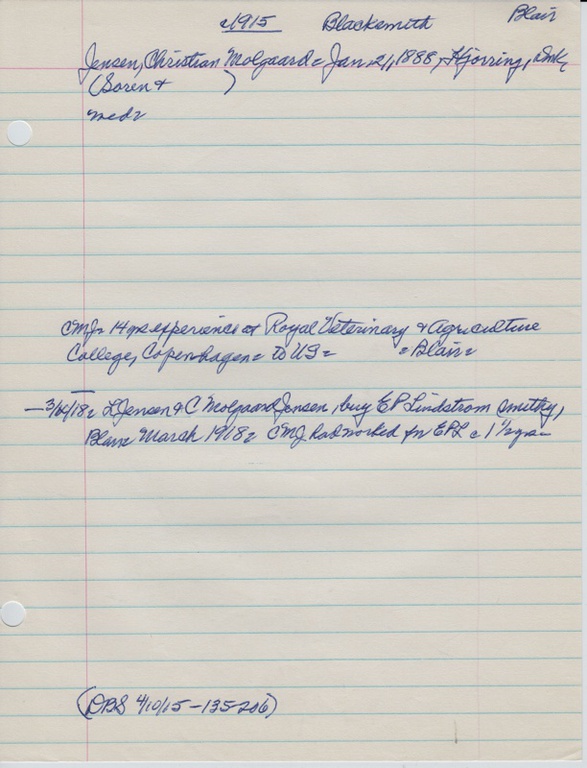 c1915 Blacksmith Blair
Jensen, Christian Molgaard = Jan 21, 1888, Hjorring, Dmk,
(Soren + )
med =
CMJ = 14 yrs experience at Royal Veterinary & Agriculture
College, Copenhagen = to US = = Blair =
— 3/14/18 = L Jensen & C Molgaard Jensen, buy E P Lindstrom smithy,
Blair March 1918 = CMJ had worked for EPL c 1 1/2 yrs =
(DBS 4/10/15 - 135-206)